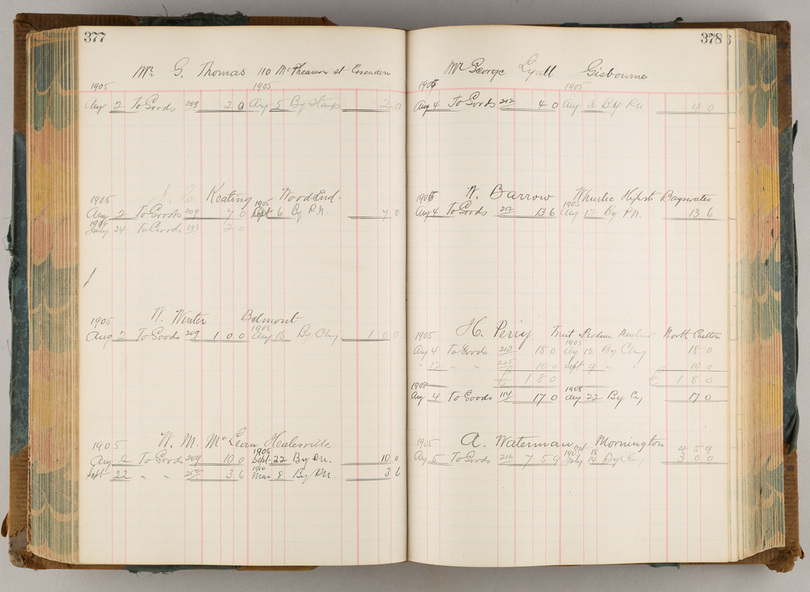 377
Mr G. Thomas 110 St Essendon
1905 1905
Aug 2 To Goods 209 2 0 Aug 5 By Stamps 2 0
Keating Woodend.
1905 1905
Aug 2 To Goods 209 7 0 Sept 6 By P.N. 7 0
24 To Goods
W. Winter Belmont
1905 1905
Aug 2 To Goods 209 1 0 0 Aug 15 By Chq 1 0 0
W. M. McLean Healesville
1905 1905
Aug 2 To Goods 209 10 0 Sept 22 By P.N. 10 0
Sept 22 " " 3 6 Mar 8 By P.N. 3 6
378
Mr George Lyall Gisbourne
1905 1905
Aug 4 To Goods 212 4 0 Aug By P.N. 4 0
W. Barrow Bayswater
1905 1905
Aug 4 To Goods 212 13 6 Aug 17 By P.N. 13 6
H. Perry North Chitter
1905 1905
Aug 4 To Goods 18 0 Aug 12 By Chq 18 0
" 12 " " 225 10 0 Sept 9 " 10 0
£ 1 8 0 £ 1 8 0
1908 1908
Aug 4 To Goods 114 17 0 Aug 22 By Cq 17 0
A. Waterman Mornington
1905 4 5 9
Aug 5 To Goods 216 7 5 9 July 14 By Chq 3 0 0